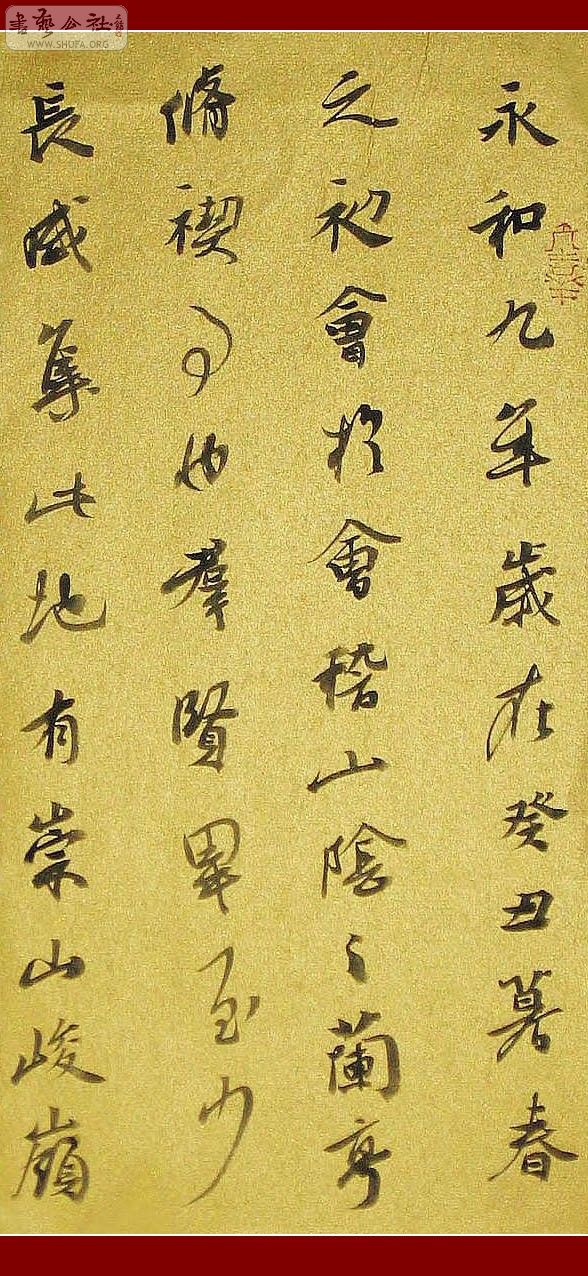 永和九年歲在癸丑暮春
之初會於會稽山陰之蘭亭
脩禊事也羣賢畢至少
長咸集此地有崇山峻嶺
書藝公社
WWW.SHUFA.ORG